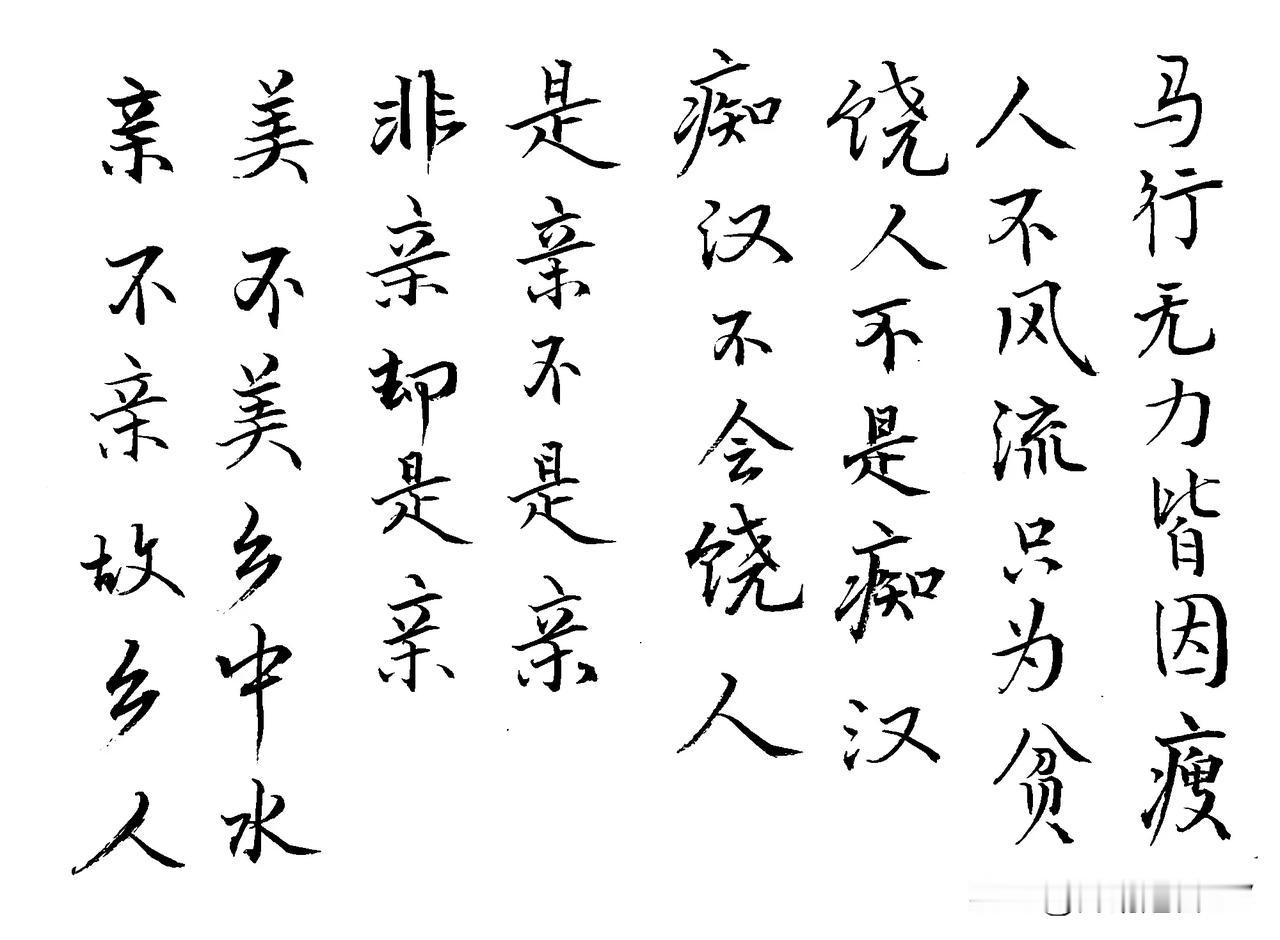 马行无力皆因瘦
人不风流只为贫
饶人不是痴汉
痴汉不会饶人
是亲不是亲
非亲却是亲
美不美乡中水
亲不亲故乡人